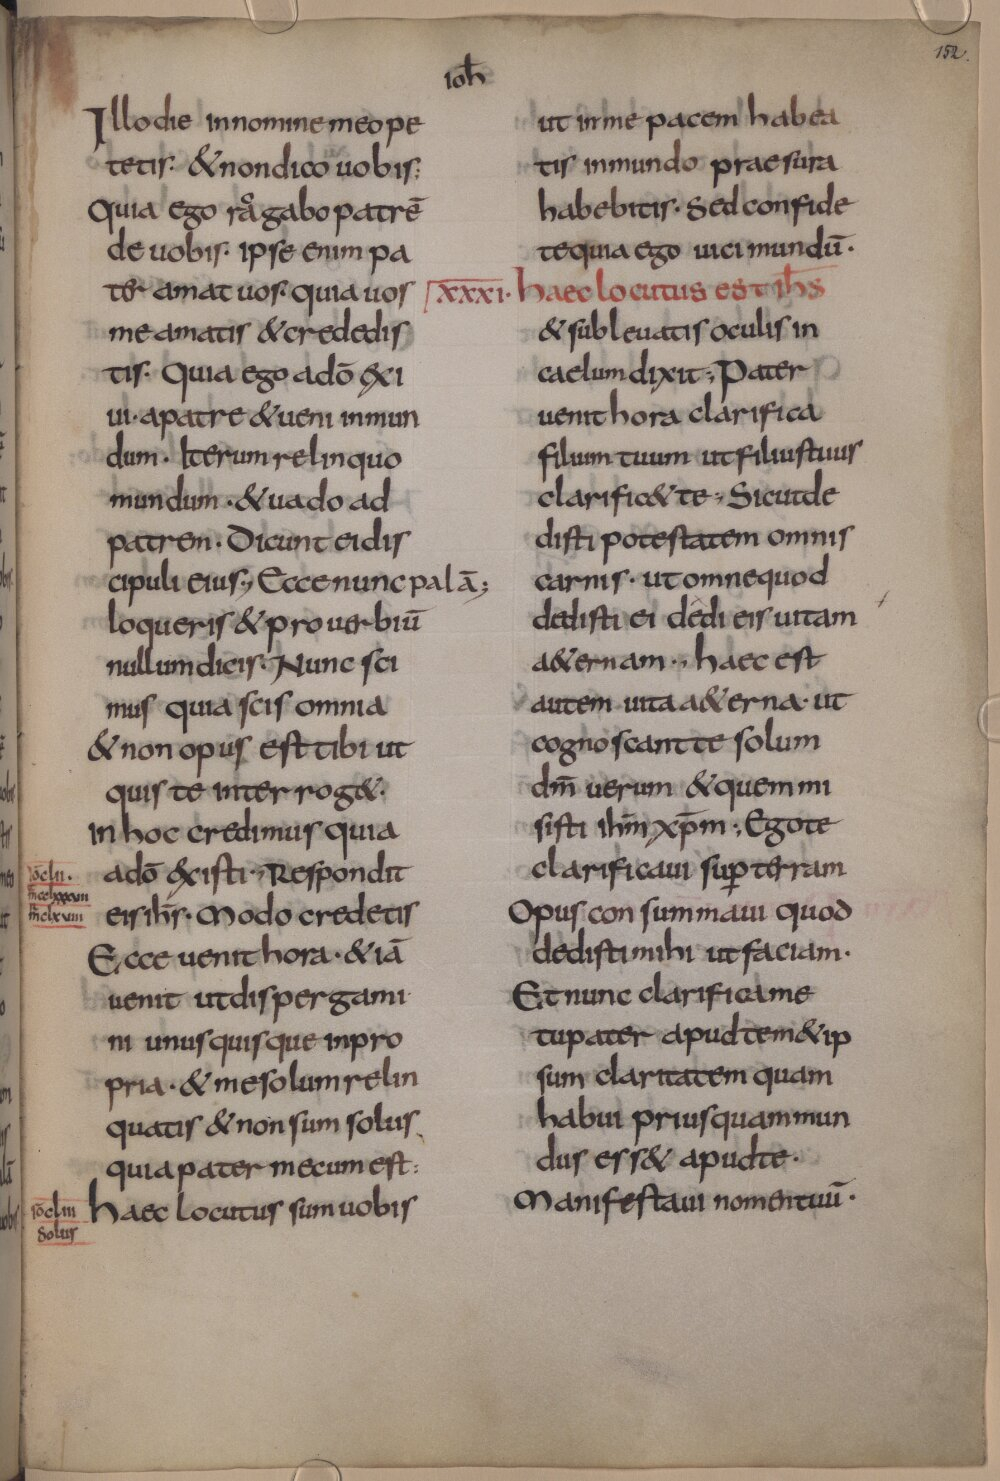 152.
ioh̄
Illo die in nomine meo pe
tetis. & non dico uobis;
Quia ego rogabo patrē
de uobis. ipse enim pa
ter amat uos. quia uos
me amatis & crededis
tis. Quia ego a dō exi
ui. a patre & ueni in mun
dum. Iterum relinquo
mundum. & uado ad
patrem. Dicunt ei dis
cipuli eius; Ecce nunc palā;
loqueris & prouerbiū
nullum dicis. Nunc sci
mus quia scis omnia
& non opus est tibi ut
quis te interrog&.
in hoc credimus quia
a dō existi; Respondit
iō clii.
m̄ cclxxxviii
m̄ clxviii
eis ih̄s. Modo credetis
Ecce uenit hora. & iā
uenit ut dispergami
ni unusquisque in pro
pria. & me solum relin
quatis & non sum solus
quia pater mecum est:
iō cliii
solus
haec locutus sum uobis
ut in me pacem habea
tis in mundo praesura
habebitis. Sed confide
te quia ego uici mundū.
xxxi. haec locutus est ih̄s
& subleuatis oculis in
caelum dixit; Pater
uenit hora clarifica
filium tuum ut filius tuus
clarific& te; Sicut de
disti potestatem omnis
carnis. ut omne quod
dedisti ei dedi eis uitam
a&ernam; haec est
autem uita a&erna. ut
cognoscant te solum
dm̄ uerum & quem mi
sisti ih̄m xp̄m; Ego te
clarificaui sup̱ terram
Opus consummaui quod
dedisti mihi ut faciam.
Et nunc clarifica me
tu pater apud tem& ip
sum claritatem quam
habui priusquam mun
dus ess& apud te.
Manifestaui nomen tuū.